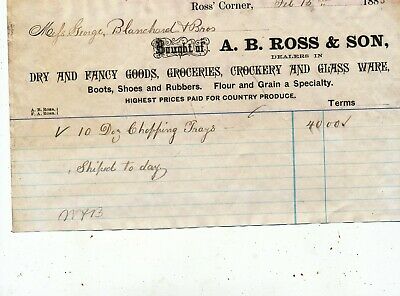 Ross' Corner, Feb 188
Mess George, Blanchard & Bros
Bought of A. B. ROSS & SON,
DEALERS IN
DRY AND FANCY GOODS, GROCERIES, CROCKERY AND GLASS WARE,
Boots, Shoes and Rubbers. Flour and Grain a Specialty.
HIGHEST PRICES PAID FOR COUNTRY PRODUCE.
A. B. ROSS,
F. A. ROSS.
Terms
✓ 10 Doz Chopping Trays - 40 00 ✓
Shiped to day